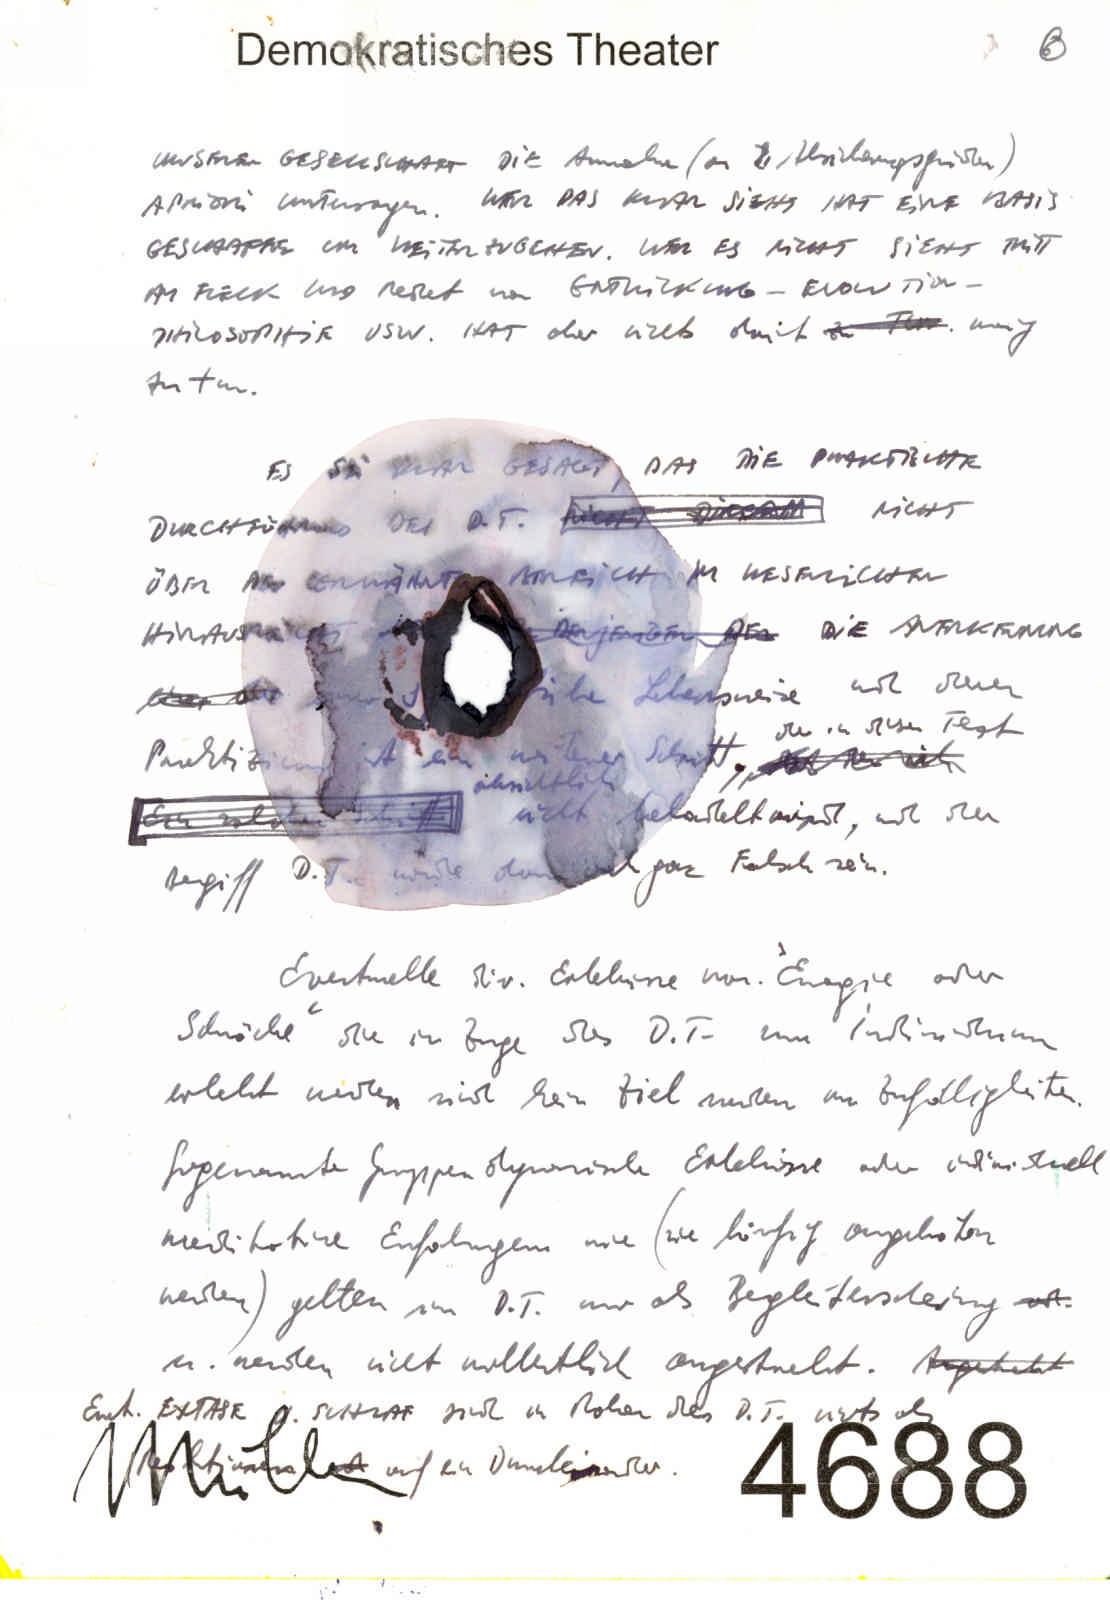 Demokratisches Theater 6
UNSERER GESELLSCHAFT DIE Annahme (an
APRIORI untersagen. WER DAS KLAR SIEHT HAT EINE BASIS
GESCHAFFEN UM WEITERZUGEHEN. WER ES NICHT SIEHT TRITT
AM FLECK UND redet von ENTWICKLUNG – EVOLUTION –
PHILOSOPHIE USW. HAT aber nichts damit zu Tun. wenig
zu tun.
ES SEI KLAR GESAGT, DAS DIE PRAKTISCHE
DURCHFÜHRUNG DES D.T. NICHT DIESEM NICHT
ÜBER DEN ERWÄHNTEN BEREICH IM WESENLICHEN
HINAUS DERJENIGEN DER DIE ANERKENNUNG
Lebensweise und deren
die in diesem Text
Praktizierung ist ein weiterer Schritt,
absichtlich
Ein solcher Schritt nicht behandelt wird, und der
Begriff D.T. würde dann auch ganz Falsch sein.
Eventuelle div. Erlebnisse von "Energie oder
Schwäche" die im Zuge des D.T. vom Individuum
erlebt werden sind kein Ziel sondern nur Zufälligkeiten.
Sogenannte Gruppendynamische Erlebnisse oder individuell
meditative Erfahrungen wie (sie häufig angeboten
werden) gelten im D.T. nur als Begleiterscheinung
u. werden nicht willentlich angestrebt.
EXTASE u. SCHLAF sind im Rahmen des D.T. nichts als
auf ein Durcheinander.
4688